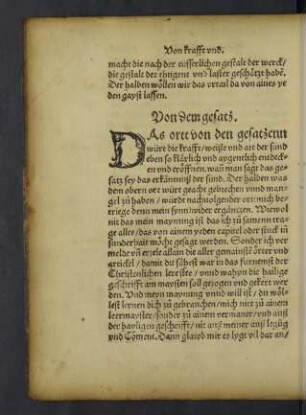 Von krafft vnd.
macht die nach der eusserlichen gestalt der werck/
die gestalt der thugent vnd laster geschätzt habē.
Der halben wöllen wir das vrtail da von aines ye
den gayst lassen.
Von dem gesatz.
DAs ortt von den gesatzenn
würt die krafft/ weiße vnd art der sünd
eben so klärlich vnd aygentlich entdeck-
en vnd eröffnen/ wañ man sagt das ge-
satz sey das erkäntnuß der sünd. Der halben was
dem obern ort würt geacht gebrechen vnnd man-
gel zu haben/ würdt nachuolgender
betriege denn mein synn/ wider ergäntzen. Wiewol
nit das mein maynung ist/ das ich zu samenn tra-
ge alles/ das von ainem yeden capitel oder stuck in
sunderhait möcht gesagt werden. Sonder ich ver-
melde vñ erzele allain die aller gemainste örter vnd
artickel/ damit du sähest war in das furnemst der
Christenlichen leer stee/ vnnd wahyn die hailige
geschrifft am maysten soll gezogen vnd gekert wer
den. Vnd meyn maynung vnnd will ist/ du wöl-
lest lernen dich zu gebrauchen/ mich nitt zu ainem
leermayster/ sonder zu ainem vermaner/ vnd auß
der hayligen geschrifft/ nit auß meiner außlegūg
vnd Cōment. Dann glaub mir es lygt vil dar an/